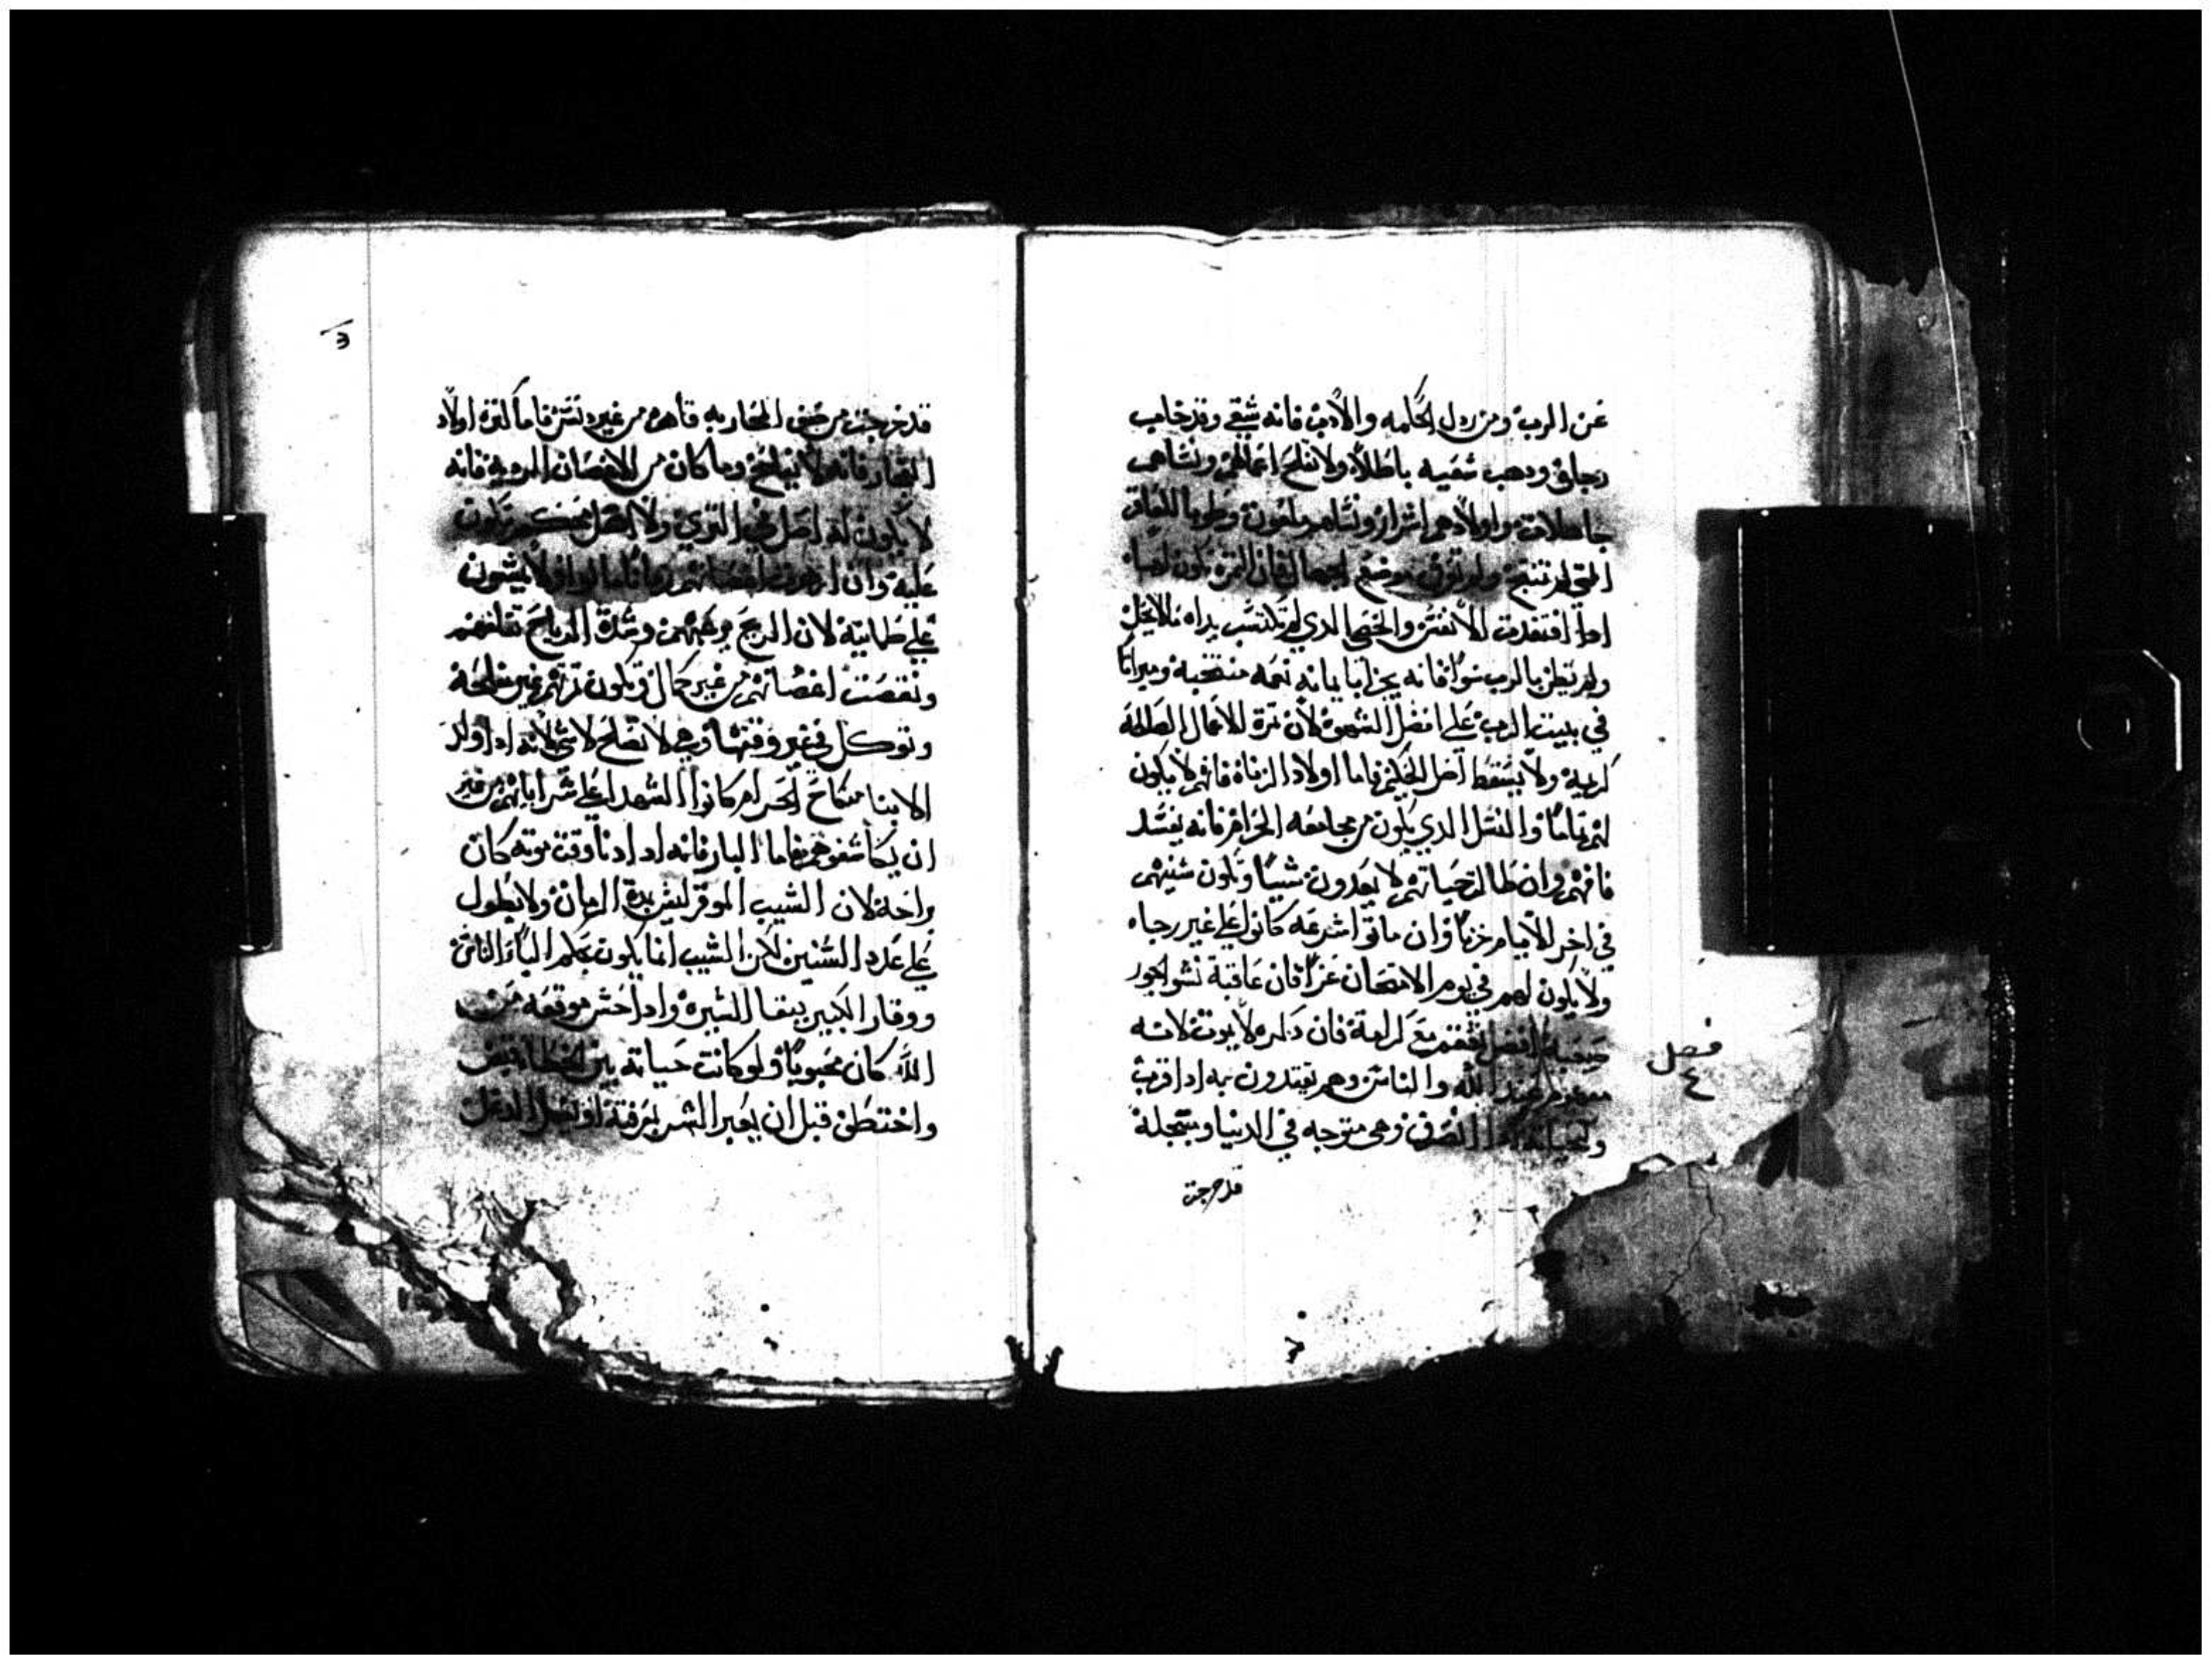 عن الرب ومن ردل الحكمه والادب فانه شقي وقد خاب
رجاؤه ودهب شقيه باطلاً ولا تصلح اعمالهم ونشاهم
جاهلات واولادهم اشرار ونشاهم ملعون وطوبا للعاقر
التي لم تنتج ولم تعرف موضع
ادا افتقدت الانفش والخصي الدي لم تكتشب يداه مالا يحل
ولم يظن بالرب شواً فانه يجزا بايمانه نعمه منتخبة وميراثاً
في بيت الرب علي افضل الشهوة لان ثمرة الاعمال الصالحه
كريمة ولا يشقط اصل الحكيم فاما اولاد الزناة فانهم لا يكون
لهم تماماً والنشل الدي يكون من مجامعه الحرام فانه يفشد
فانهم وان طالت حياتهم لا يعدون شيئاً وتكون شنيهم
في اخر الايام خزياً وان ماتوا اشرعه كانوا علي غير رجاء
ولا يكون لهم في يوم الامتحان عزاً فان عاقبة نشو الجور
صعبة افضل مع كرامة فان دكره لا يموت لانه
معلوم عند الله والناش وهم يقتدون به ادا قرب
انصرف وهي متوجه في الدنيا وبتجلة
قد خرجت
فصل
٤
قد خرجت من المحاربه قاهره من غير دنش فاما كثرة اولاد
الفجار فانه لا وما كان من الاغصان الرديه فانه
لا يكون له اصل في الثري ولا
عليه وان ازهرت اغصانهم زماناً مالوا ولا يثبتون
علي طمانينة لان الريح يوعبهم وشدة الرياح تقلعهم
ونقصت اغصانهم من غير كمال وتكون ثمرتهم غير صالحة
وتوكل في غير وقتها وهي لا تصلح لاشي لانه ادا ولد
الابنا من نكاح الحرام كانوا الشهدا علي شر ابايهم من غير
ان يكاشفوهم فاما البار فانه ادا دنا وقت موته كان
براحة لان الشيب الموقر ليش بمدة الزمان ولا يطول
علي عدد الشنين لكن الشيب انما يكون بحكم الناش
ووقار الكبير بنقا الشيرة وادا حشن موقعه من
الله كان محبوباً ولو كانت حياته بين الخطاة
واختطف قبل ان يغير الشر معرفته او يضل الدغل